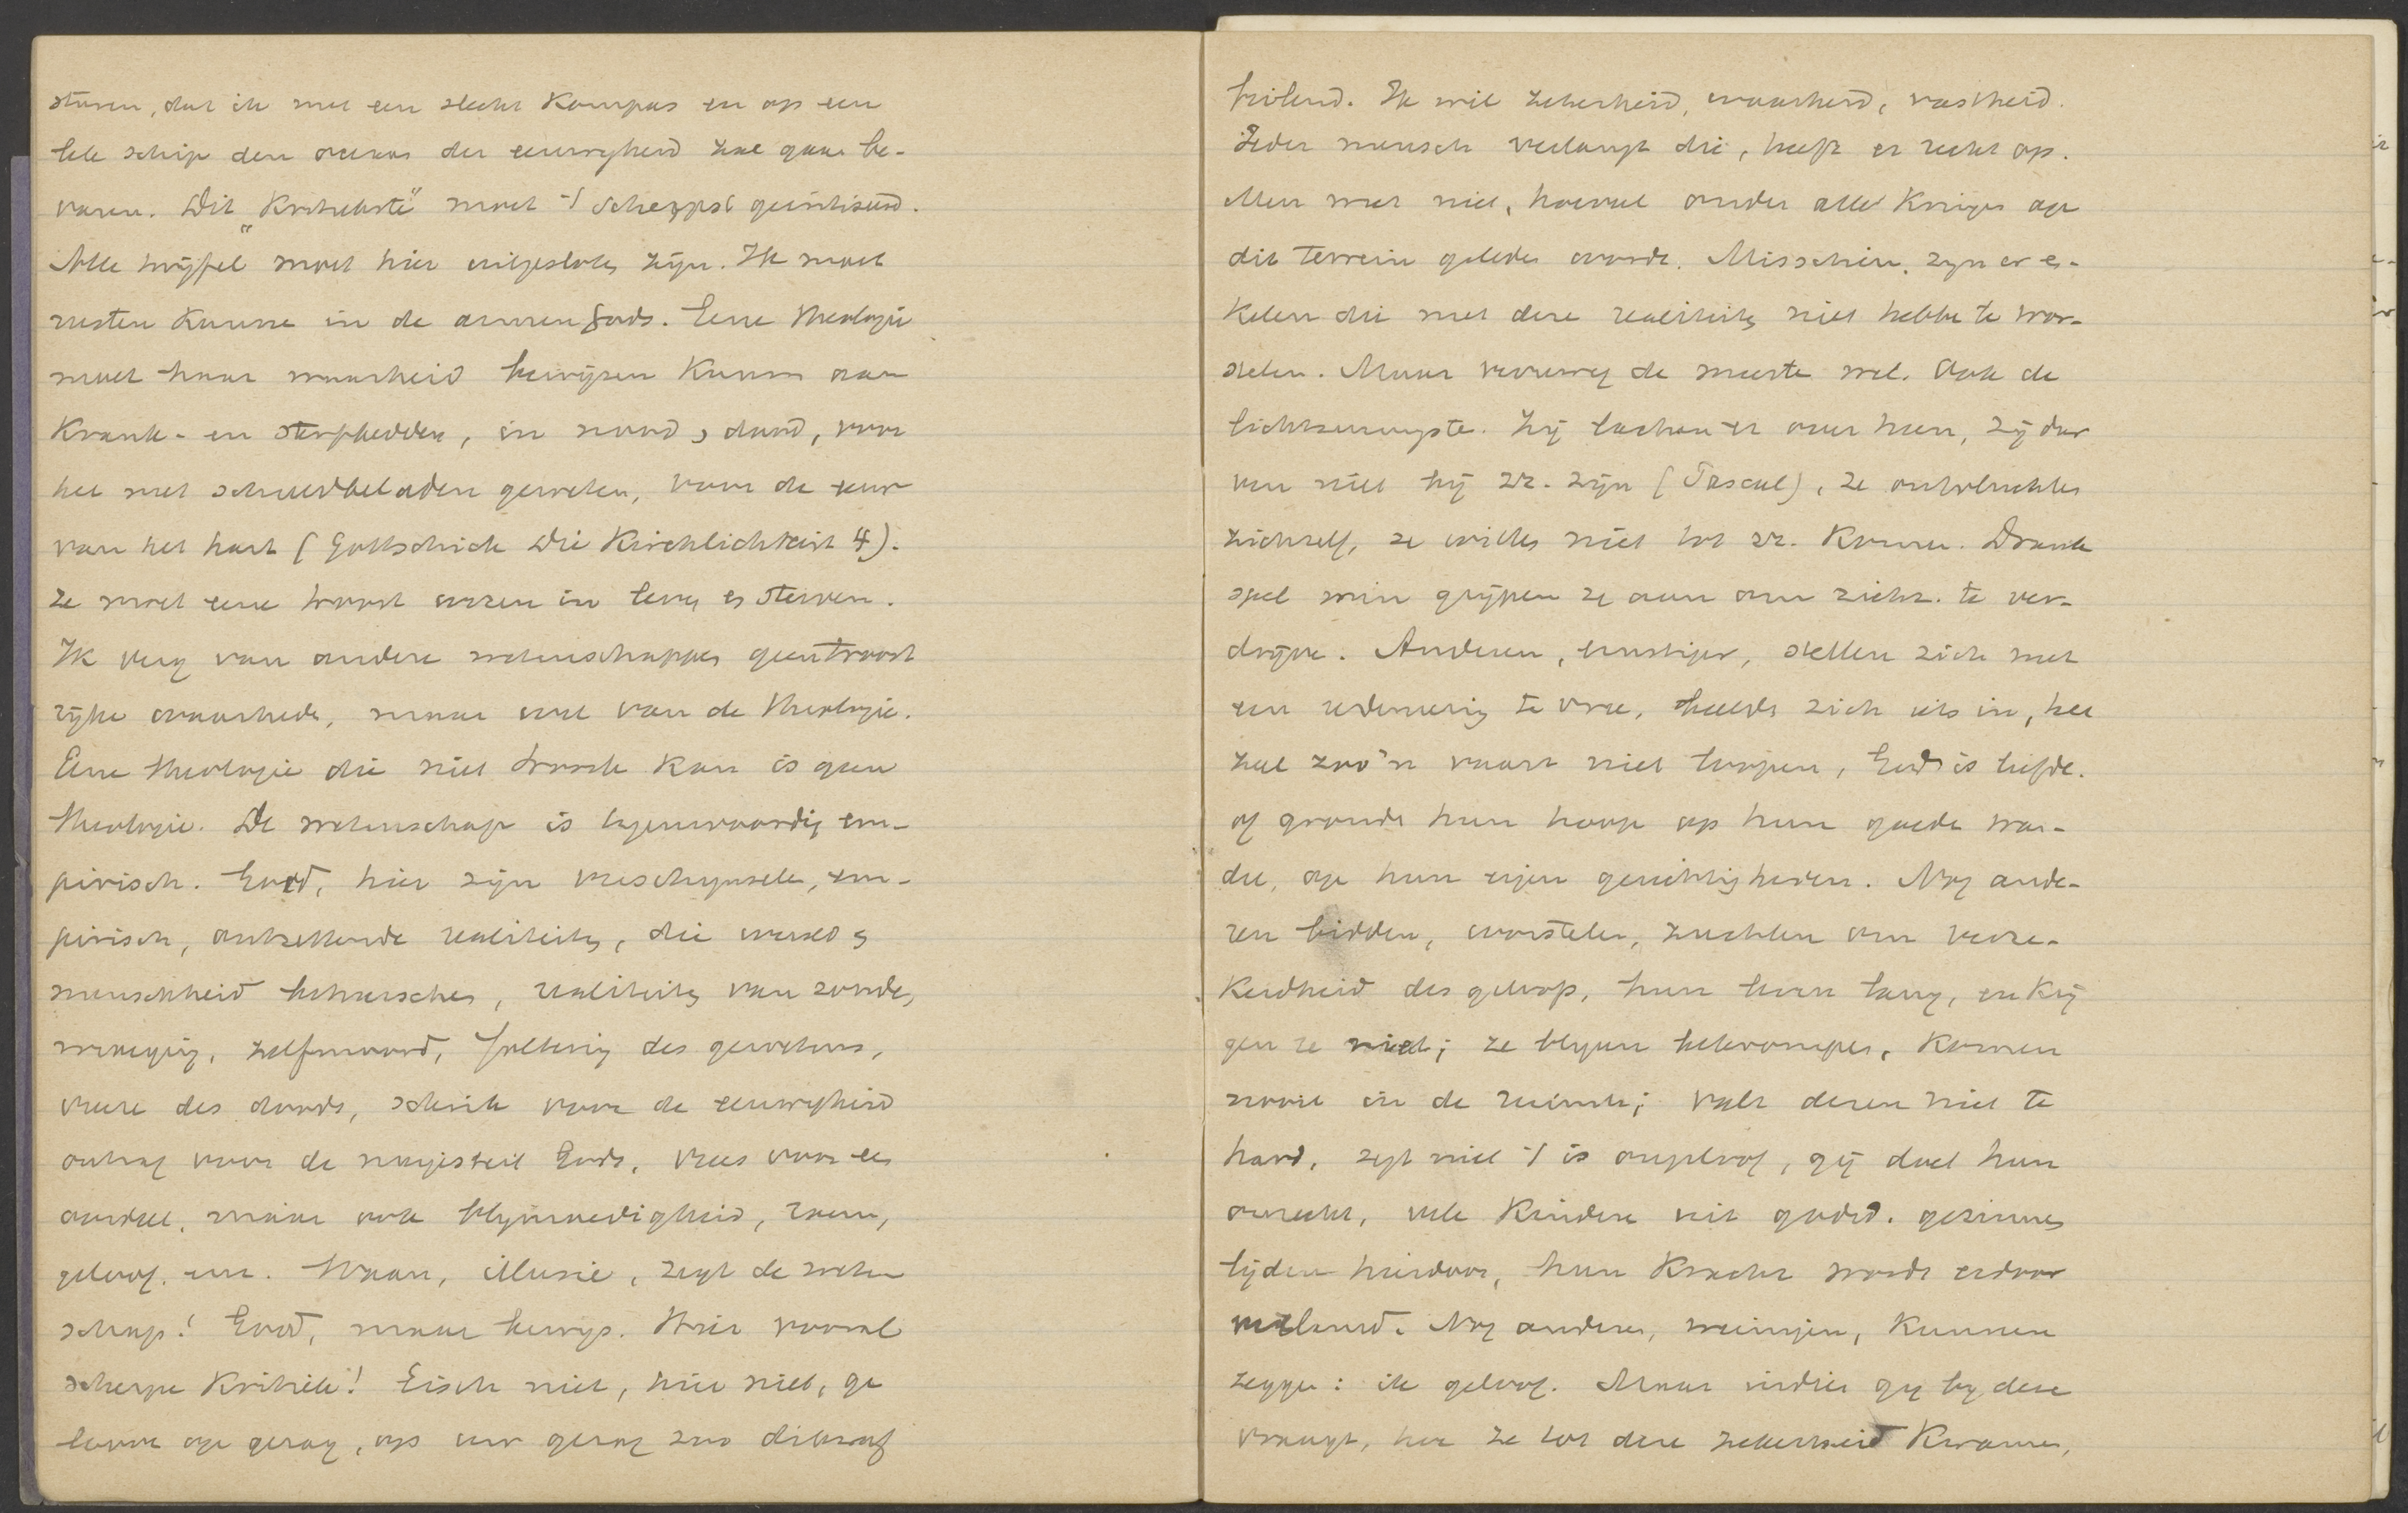 sturen, dat ik met een slecht Kompas en op een
lek schip den oceaan der eeuwigheid zal gaan be-
varen. Dit "Kritiekste" moet 't scherpst gecritiseerd.
Alle twijfel moet hier uitgesloten zijn. Ik moet
rusten Kunne in de armen Gods. Eene theologie
moet haar waarheid bewijzen Kunnen aan
Krank- en sterfbedden, in nood en dood, voor
het met schuldbeladen geweten, voor de
van het hart (Gottschick Die Kirchlichkeit 4).
Ze moet eene troost wezen in leven en sterven.
Ik verg van andere wetenschappen geen troost
rijke waarheden, maar wel van de theologie.
Eene theologie die niet troosten Kan is geen
theologie. De wetenschap is tegenwoordig em-
pirisch. Goed, hier zijn verschijnselen, em-
pirisch, ontzettende realiteiten, die wereld en
menschheid beheerschen, realiteiten van zonde,
zelfmoord, foltering des gewetens,
vreeze des doods, schrik voor de eeuwigheid
ontzag voor de majesteit Gods, vrees voor een
oordeel, maar ook blijmoedigheid, roem,
geloof, enz. Waan, illusie, zegt de weten
schap! Goed, maar bewijs. Hier vooral
scherpe Kritiek! Eisch niet, hier niet, ge
loove op gezag, op uw gezag zoo dikwijls
feilend. Ik wil zekerheid, waarheid, vastheid.
Ieder mensch verlangt die, heeft er recht op.
Men weet niet, hoeveel onder alle Kringen op
dit terrein geleden wordt. Misschien zijn er en-
Kelen die met deze realiteiten niet hebben te wor-
stelen. Maar verreweg de meeste wel. Ook de
lichtzinnigste. Zij lachen er over heen, zij dur
ven niet bij zz. zijn (Pascal), ze ontvluchten
zichzelf, ze willen niet tot zz. Komen. Drank
spel min grijpen ze aan om zichz. te ver-
drijve. Anderen, ernstiger, stellen zich met
een redeneering te vree, beelden zich iets in, het
zal zoo'n vaart niet loopen, God is liefde.
of gronden hun hoop op hun goede wan-
del, op hun eigen gerechtigheden. Nog ande-
ren bidden, worstelen, zuchten om verze-
Kerdheid des geloofs, hun leven lang, en Krij
gen ze niet; ze blijven bekrompen, Komen
nooit in de ruimte; valt dezen niet te
hard, zegt niet 't is ongeloof, gij doet hun
onrecht, vele Kinderen uit godsd. gezinnen
lijden hierdoor, hun Kracht wordt erdoor
verlamd. Nog anderen, weinigen, Kunnen
zeggen: ik geloof. Maar indien gij bij deze
vraagt, hoe ze tot deze zekerheid Kwamen,